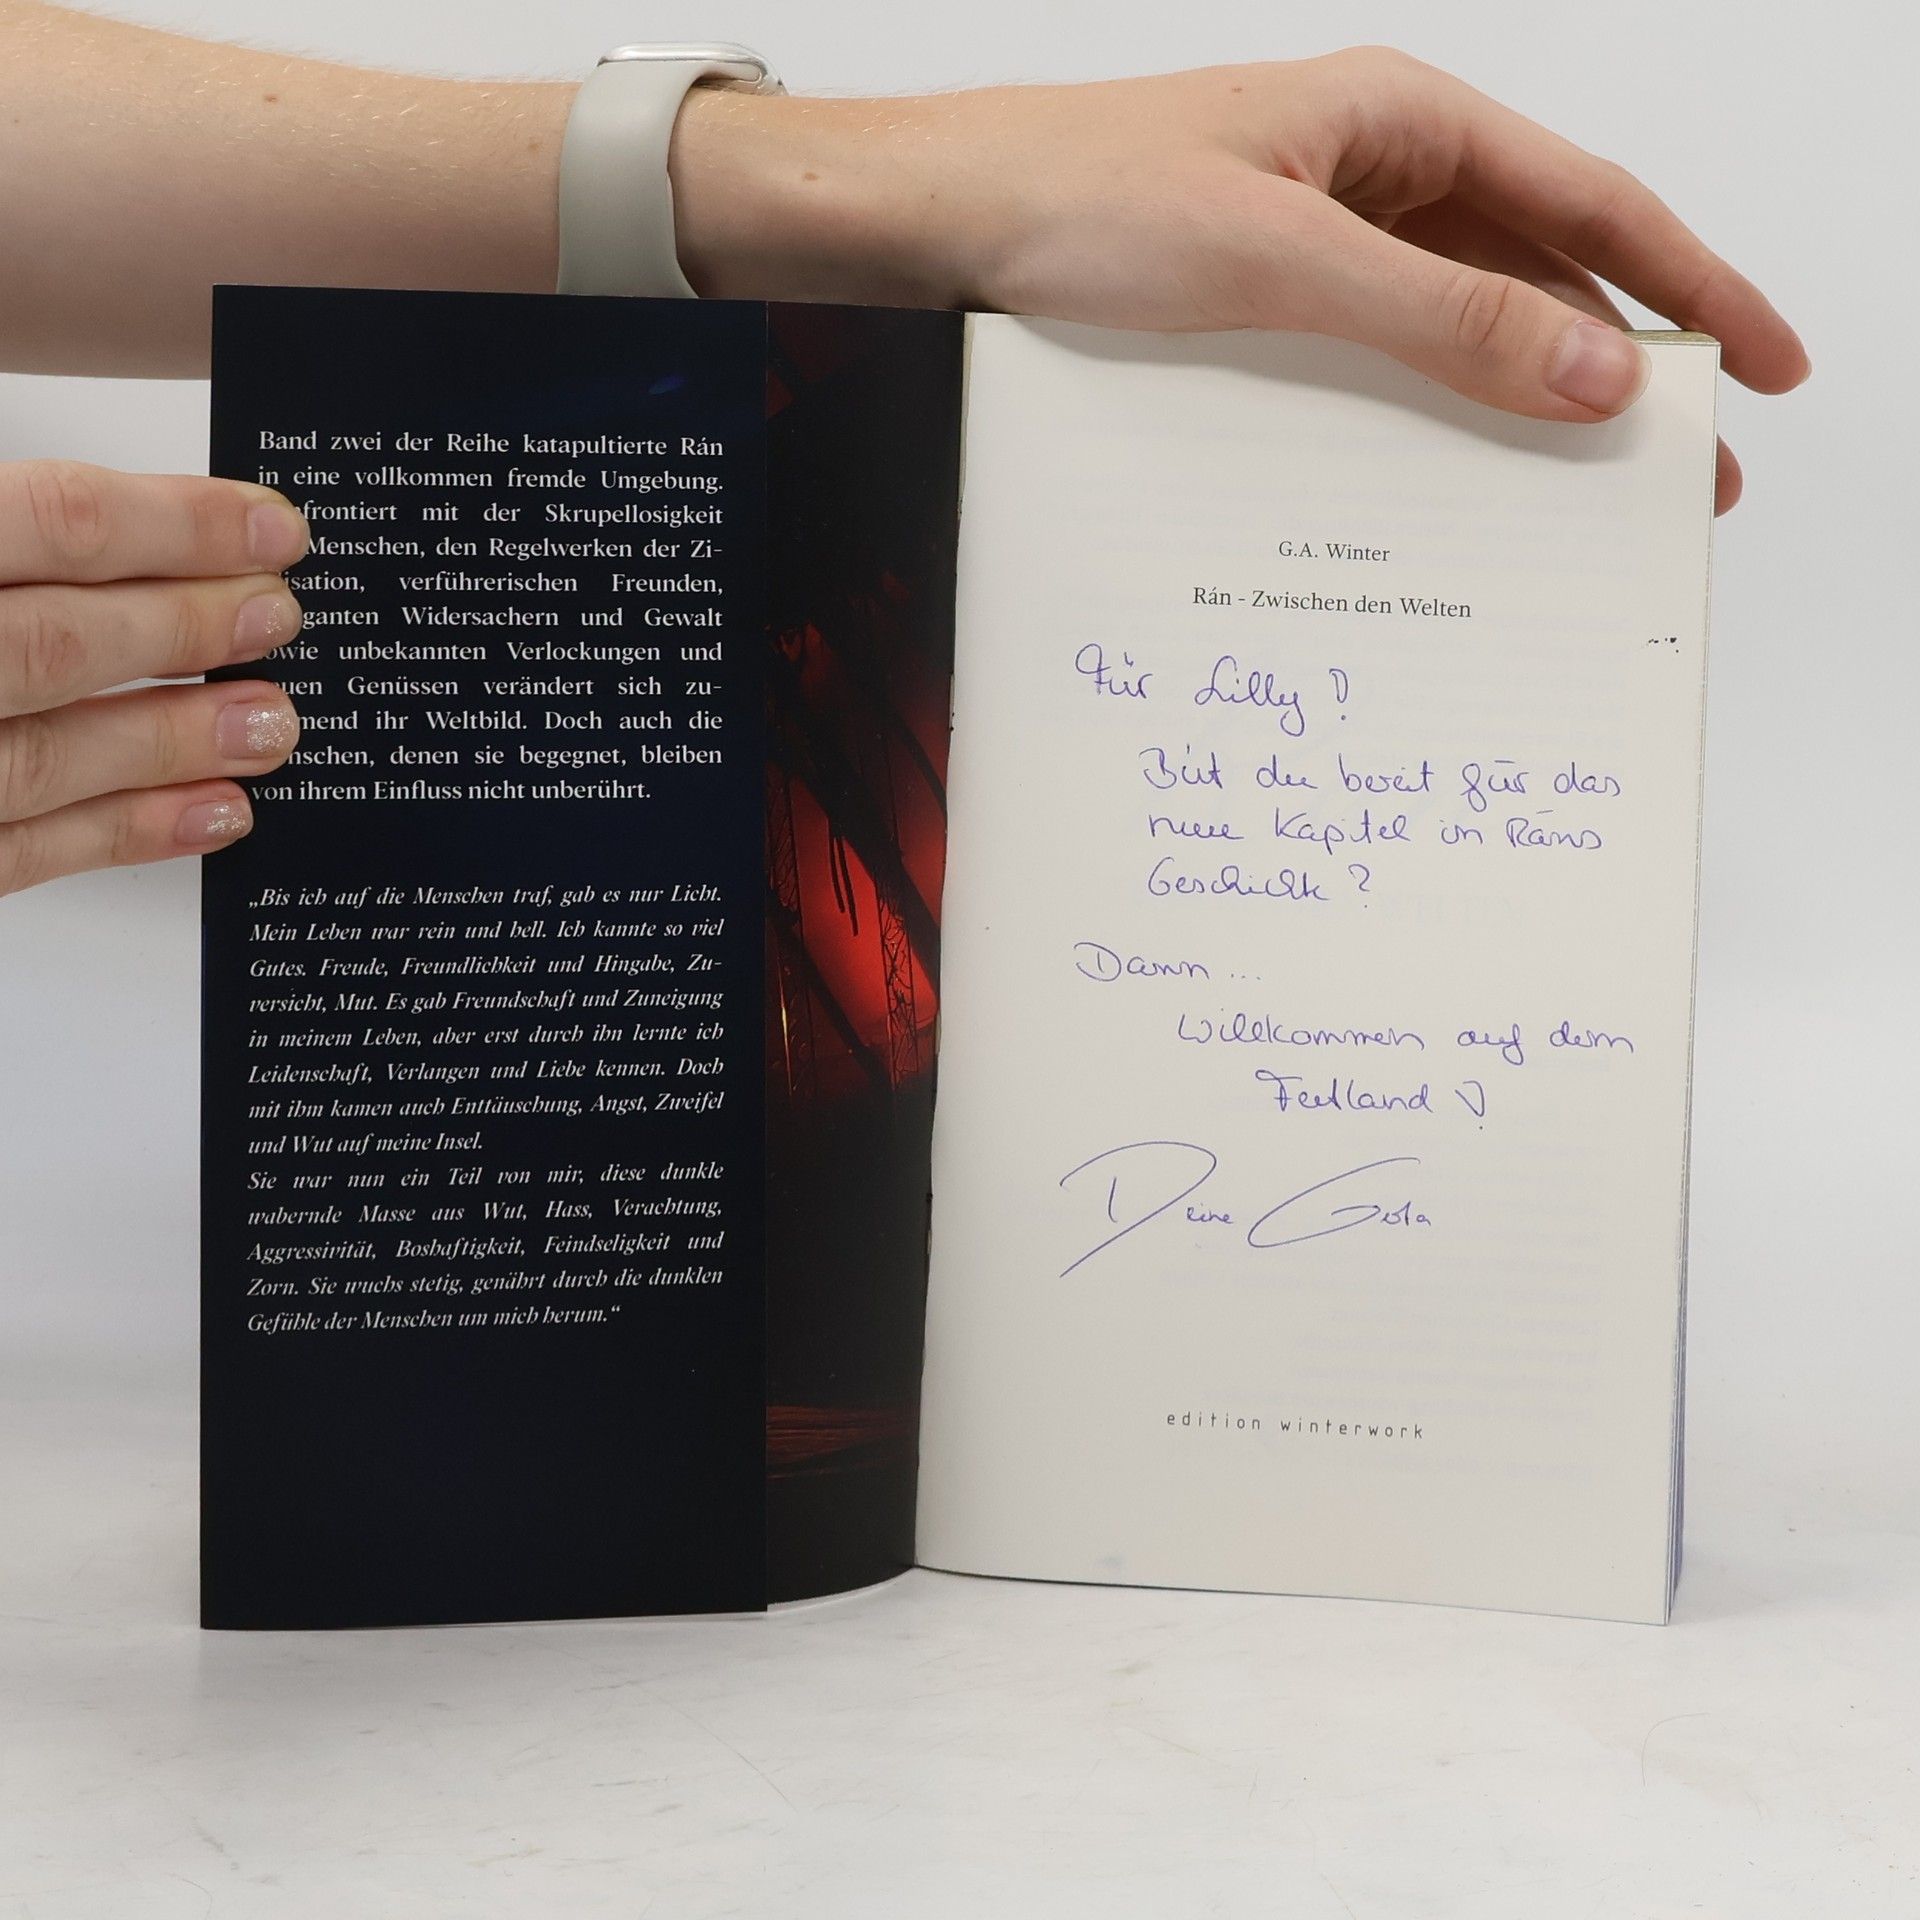 Band zwei der Reihe katapultierte Rán
in eine vollkommen fremde Umgebung.
frontiert mit der Skrupellosigkeit
Menschen, den Regelwerken der Zi-
isation, verführerischen Freunden,
ganten Widersachern und Gewalt
owie unbekannten Verlockungen und
uen Genüssen verändert sich zu-
mend ihr Weltbild. Doch auch die
nschen, denen sie begegnet, bleiben
von ihrem Einfluss nicht unberührt.
„Bis ich auf die Menschen traf, gab es nur Licht.
Mein Leben war rein und hell. Ich kannte so viel
Gutes. Freude, Freundlichkeit und Hingabe, Zu-
versicht, Mut. Es gab Freundschaft und Zuneigung
in meinem Leben, aber erst durch ihn lernte ich
Leidenschaft, Verlangen und Liebe kennen. Doch
mit ihm kamen auch Enttäuschung, Angst, Zweifel
und Wut auf meine Insel.
Sie war nun ein Teil von mir, diese dunkle
wabernde Masse aus Wut, Hass, Verachtung,
Aggressivität, Boshaftigkeit, Feindseligkeit und
Zorn. Sie wuchs stetig, genährt durch die dunklen
Gefühle der Menschen um mich herum.“
G.A. Winter
Rán - Zwischen den Welten
Für Lilly!
Bist du bereit für das
neue Kapitel in Ráns
Geschichte?
Dann...
Willkommen auf dem
Festland!
Deine
edition winterwork